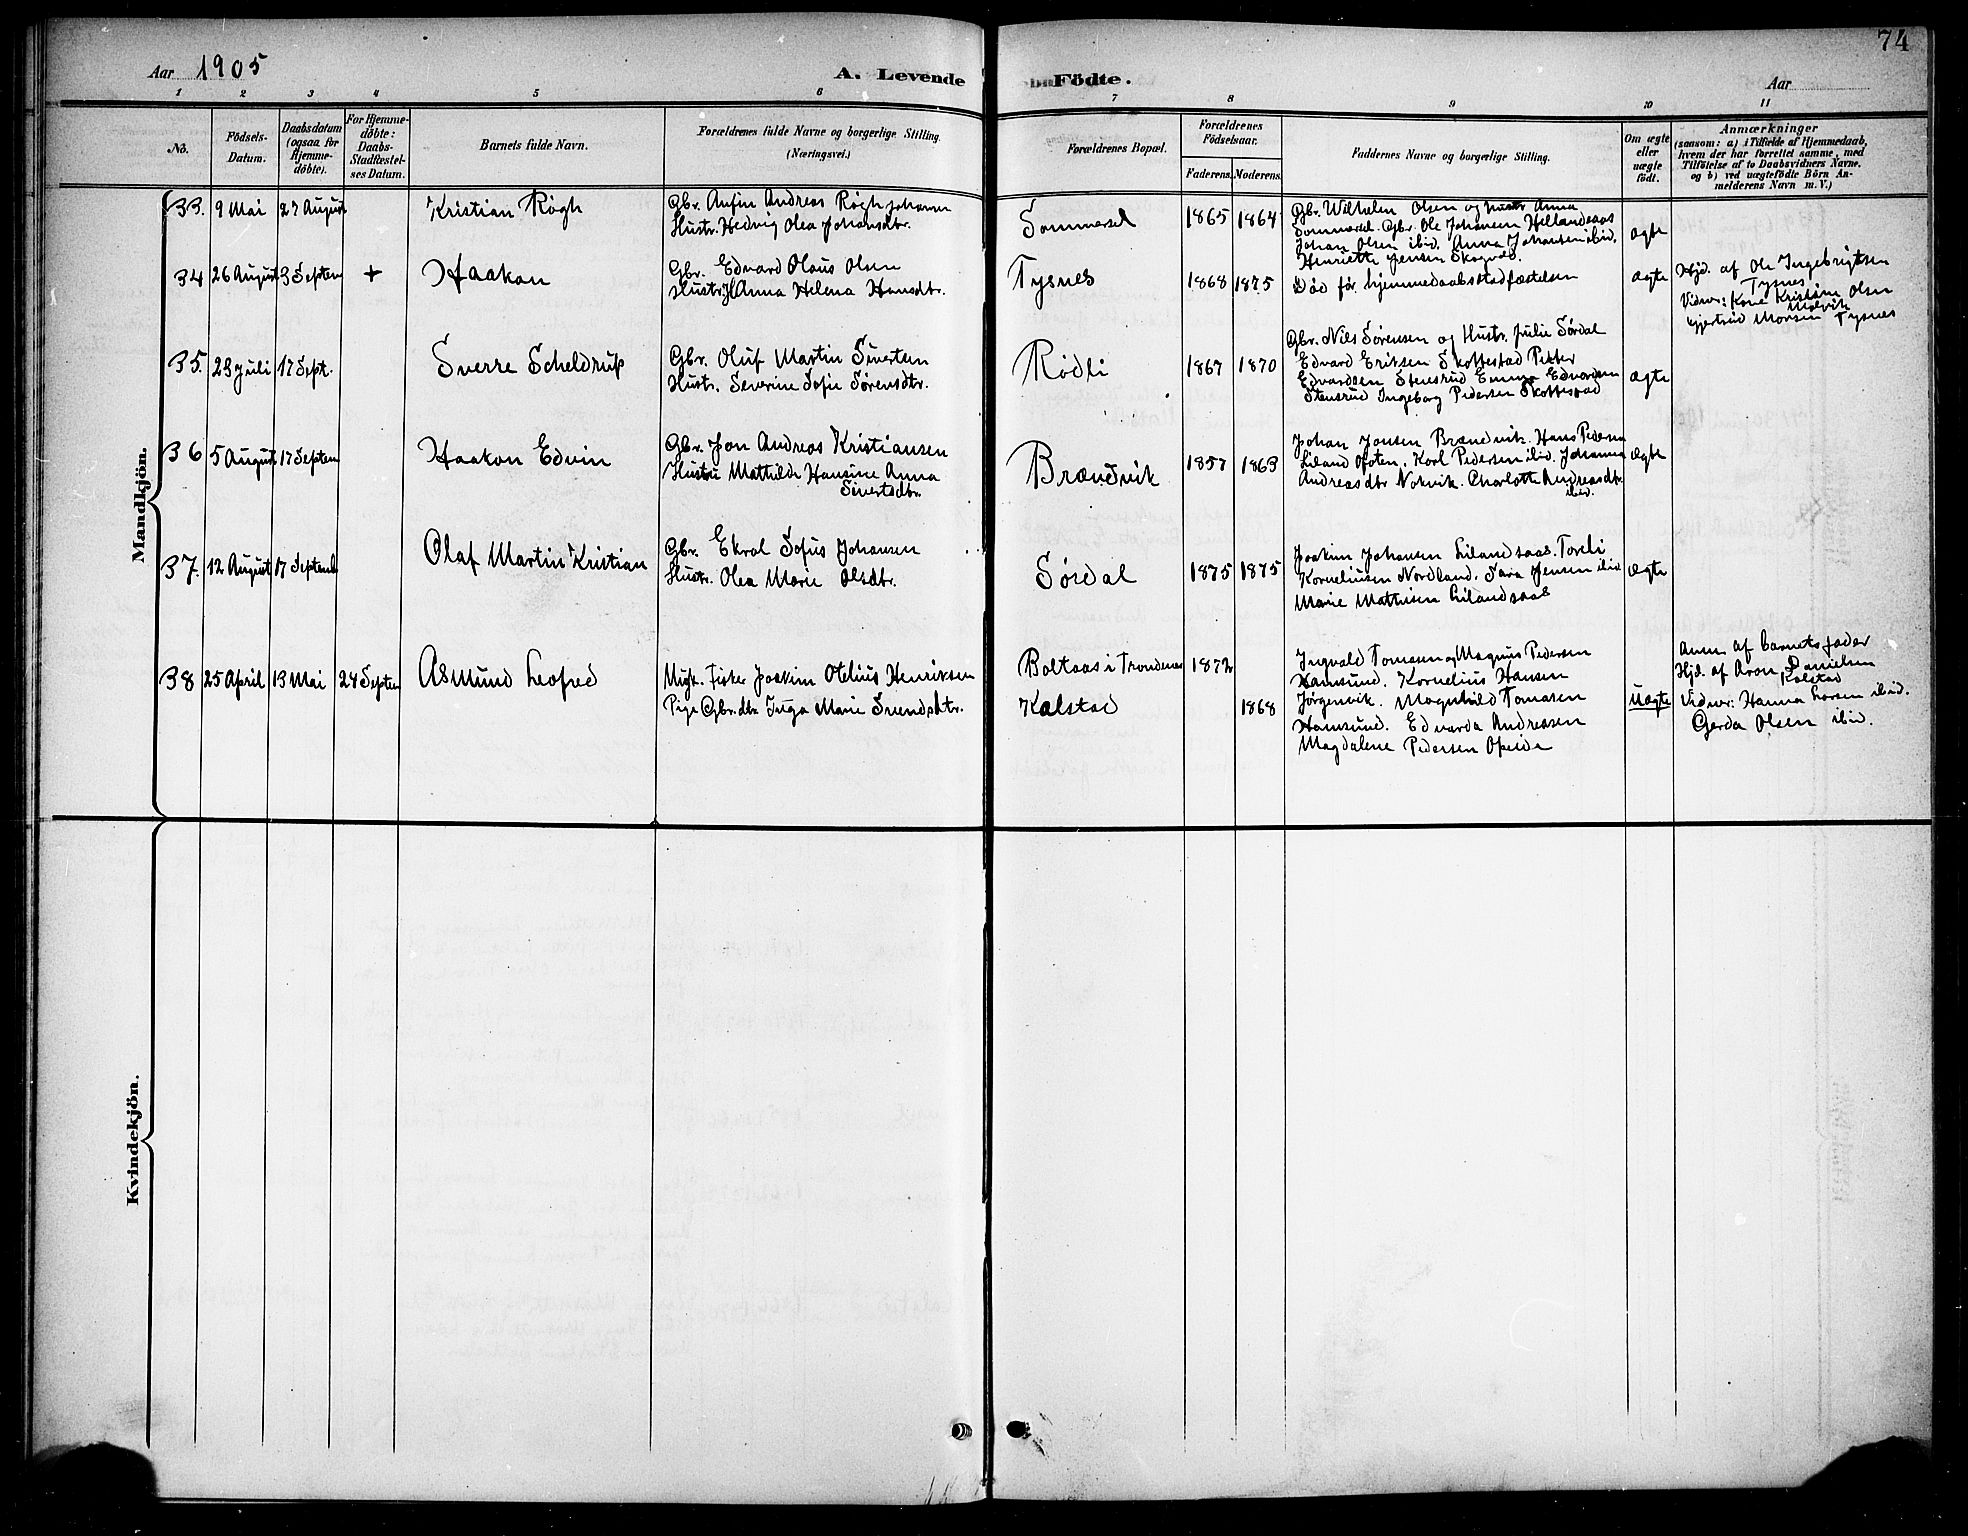 74
Aar 1905
A. Levende
Födte.
Aar
1 2 3 4 5 6 7 8 9 10 11
No.
Födsels-
Datum.
Daabsdatum
(ogsaa for
Hjemme-
döbte).
For Hjemme-
döbte:
Daabs-
Stadfæstel-
ses Datum.
Barnets fulde Navn.
Forældrenes fulde Navne og borgerlige Stilling.
(Næringsvei.)
Forældrenes Bopæl.
Forældrenes
Födselsaar.
Faderens. Moderens.
Faddernes Navne og borgerlige Stilling.
Om ægte
eller
uægte
födt.
Anmærkninger
(saasom: a) i Tilfælde af Hjemmedaab,
hvem der har forrettet samme, med
Tilföielse af to Daabsvidners Navne.
og b) ved uægtefödte Börn An-
melderens Navn m. V.)
Mandkjön.
33. 9 Mai 27 August
Kristian Røgh
Gbr. Anfin Andreas Røgh Johansen
Hustr. Hedvig Olea Johansdtr.
Sommersel
1865 1864
Gbr. Wilhelm Olsen og Hustr Anna
Sommersel. Gbr. Ole Johansen Hellandsaas
Johan Olsen ibid. Anna Johansen ibid.
Henriette Jensen Skogvold.
ægte
34 26 August 3 Septem +
Haakon
Gbr. Edvard Olaus Olsen
Hustr. Anna Helena Hansdtr.
Tysnes
1868 1875
Død før hjemmedaabsstadfæstelsen
ægte
Hjd. af Ole Ingebrigtsen
Tysnes
Vidner: Kone Kristine Olsen
Molvik
Gjertrud Monsen Tysnes
35. 23 Juli 17 Sept.
Sverre Scheldrup
Gbr. Oluf Martin Sivertsen
Hustr. Severine Sofie Sørensdtr.
Rødli
1867 1870
Gbr. Nils Sørensen og Hustr. Julie Sørdal
Edvard Eriksen Skottestad Peter
Edvardsen Stensrud Emma Edvardsen
Stensrud Ingeborg Pedersen Skottestad
ægte
36 5 August 17 Septem
Haakon Edvin
Gbr. Jon Andreas Kristiansen
Hustru Mathilde Hansine Anna
Sivertsdtr.
Brændvik
1857 1863
Johan Jonsen Brændvik. Hans Pedersen
Liland Ofoten. Karl Pedersen ibid. Johanna
Andreasdtr Nokvik. Charlotte Andreasdtr.
ibid.
ægte
37. 12 August 17 Septemb
Olaf Martin Kristian
Gbr. Ekral Sofus Johansen
Hustr. Olea Marie Olsdtr.
Sørdal
1875 1875
Joakim Johansen Lilandsaas. Toreli
Korneliusen Nordland. Sara Jensen ibid
Marie Mathisen Lilandsaas
ægte
38 25 April 13 Mai 24 Septem
Asmund Leofred
Ungk. Fisker Joakim Otelius Henriksen
Pige Gbr.dtr Inga Marie Svendsdtr.
Boltaas i Trondenes
Kalstad
1872
1868
Ingvald Tomasen og Magnus Pedersen
Hamsund. Kornelius Hansen
Jørgensvik. Magnhild Tomasen
Hamsund. Edvarda Andreassen
Magdalene Pedersen Opeide
Uægte
Anm. af barnets fader
Hjd. af Aron Danielsen
Kalstad
Vidner: Hanna Larsen ibid.
Gerda Olsen ibid.
Kvindekjön.